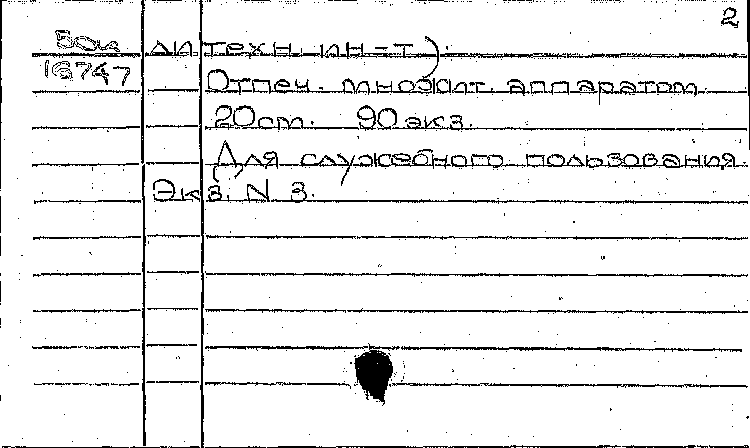 2
Бок литехн. ин-т).
16747 Отпеч. множит. аппаратом.
20 см. 90 экз.
Для служебного пользования.
Экз. N 3.